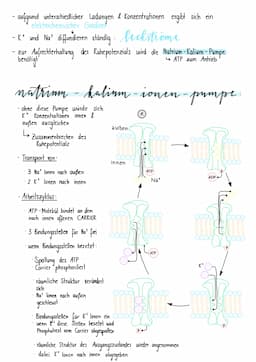 - aufgrund unterschiedlicher Ladungen & Konzentrationen ergibt sich ein
elektrochemischer Gradient
- K⁺ und Na⁺ diffundieren ständig: Leckströme
- zur Aufrechterhaltung des Ruhepotenzials wird die Natrium-Kalium-Pumpe
benötigt
↳ ATP zum Antrieb
natrium-kalium-ionen-pumpe
- ohne diese Pumpe würde sich
K⁺ Konzentrationen innen &
außen ausgleichen
↳ Zusammenbrechen des
Ruhepotenzials
- Transport von:
3 Na⁺ innen nach außen
2 K⁺ innen nach innen
- Arbeitszyklus:
ATP-Molekül bindet an den
nach innen offenen CARRIER
3 Bindungsstellen für Na⁺ frei
wenn Bindungsstellen besetzt:
Spaltung des ATP
Carrier phosphoriliert
räumliche Struktur verändert
sich
Na⁺ innen nach außen
Bindungsstellen für K⁺ Ionen
wenn K⁺ diese Stellen besetzt wird
Phosphatrest vom Carrier abgespalten
räumliche Struktur des Ausgangszustandes wieder angenommen
dabei K⁺ Ionen nach innen abgegeben
außen
innen
ATP
Na⁺
ATP